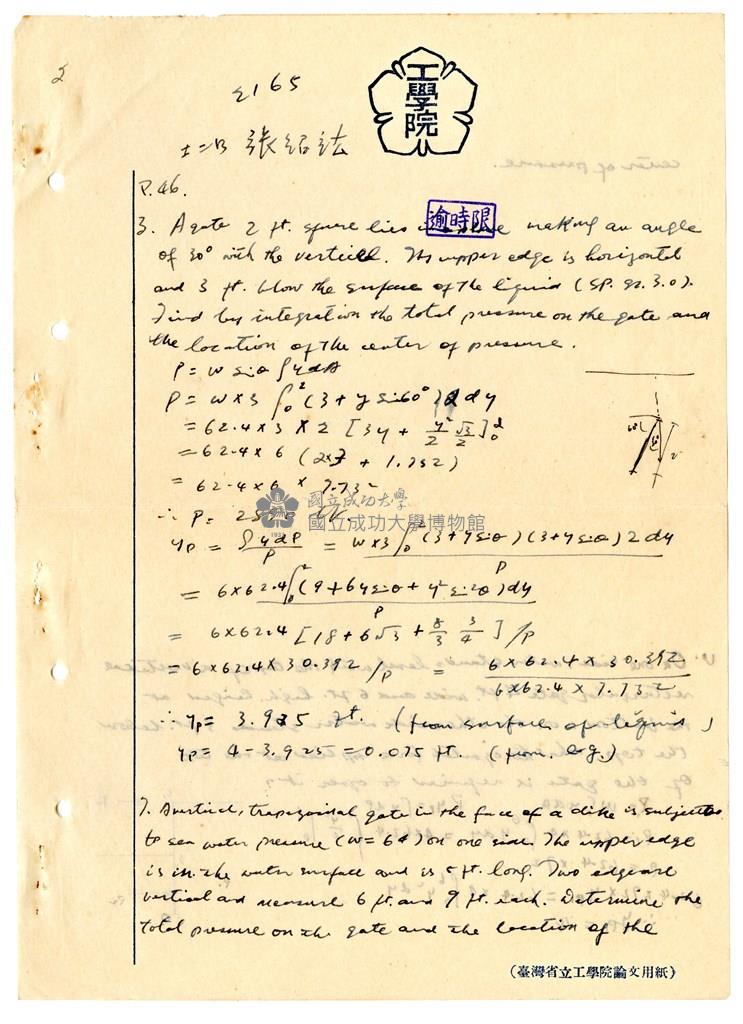 2
工學院
2165
土二乃 張紹法
P.46.
逾時限
3. A gate 2 ft. square lies making an angle
of 30° with the vertical. Its upper edge is horizontal
and 3 ft. blow the surface of the liquid (sp. gr. 3.0).
Find by integration the total pressure on the gate and
the location of the center of pressure.
P = w sinθ ∫ydA
P = w×3 ∫₀² (3 + y sin60°) 2 dy
= 62.4×3×2 [3y + y²/2 √3/2]₀²
= 62.4×6 (2×3 + 1.732)
= 62.4×6 × 7.732
∴ P =
yp = ∫ydP / P = w×3∫₀² (3+y sinθ)(3+y sinθ) 2 dy / P
= 6×62.4∫₀² (9+6y sinθ + y² sin²θ) dy / P
= 6×62.4 [18 + 6√3 + 8/3 3/4] / P
= 6×62.4×30.392 / P = 6×62.4×30.392 / 6×62.4×7.732
∴ yp = 3.925 ft. (from surface of liquid)
yp = 4 - 3.925 = 0.075 ft. (from. c.g.)
國立成功大學
國立成功大學博物館
7. A vertical, trapezoidal gate in the face of a dike is subjected
to sea water pressure (w = 64) on one side. The upper edge
is in the water surface and is 5 ft. long. Two edge are
vertical and measure 6 ft. and 9 ft. each. Determine the
total pressure on the gate and the location of the
(臺灣省立工學院論文用紙)